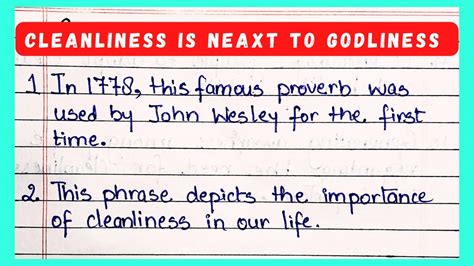 CLEANLINESS IS NEAXT TO GODLINESS
1 In 1778, this famous proverb was
used by John Wesley for the first
time.
2. This phrase depicts the importance
of cleanliness in our life.